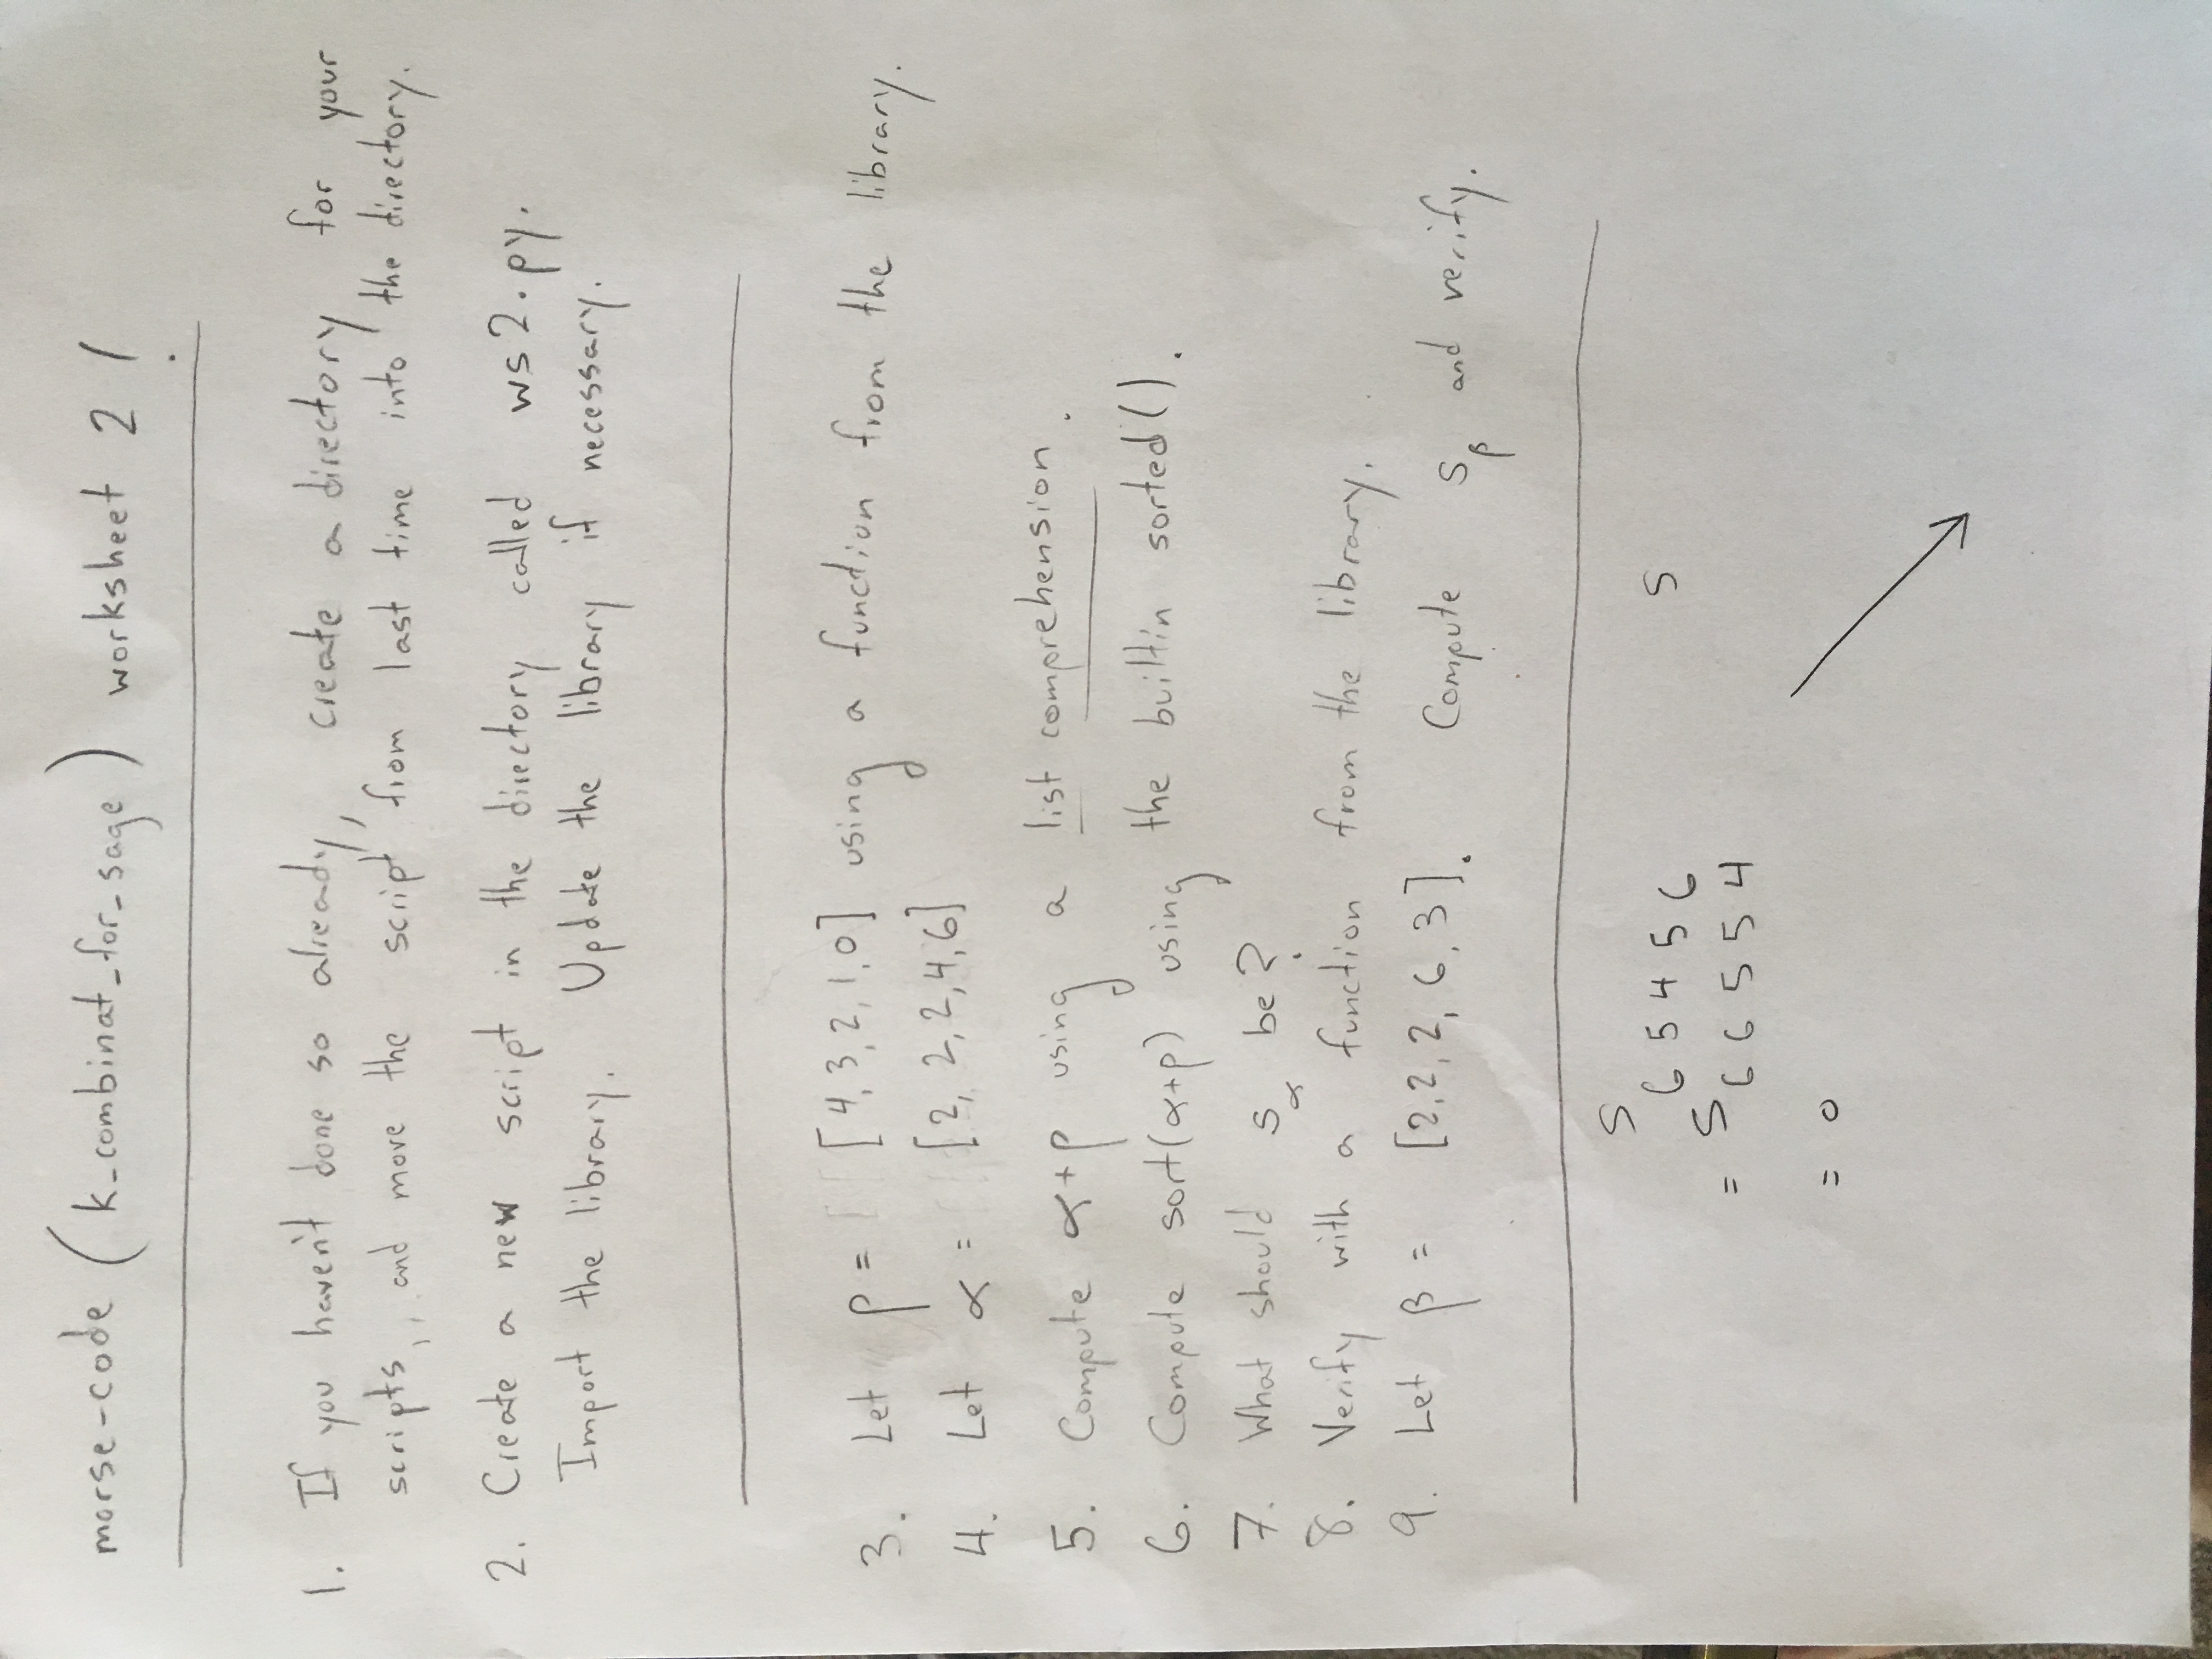 morse-code (k_combinat_for_sage) worksheet 2!
1. If you haven't done so already, create a directory for your
scripts, and move the script from last time into the directory.
2. Create a new script in the directory called ws2.py.
Import the library. Update the library if necessary.
3. Let ρ = [4,3,2,1,0] using a function from the library.
4. Let α = [2, 2,2,4,6]
5. Compute α+ρ using a list comprehension.
6. Compute sort(α+ρ) using the builtin sorted().
7. What should s_α be?
8. Verify with a function from the library.
9. Let β = [2,2,2,6,3]. Compute s_β and verify.
S
6 5 4 5 6 S
= S 6 6 5 5 4
= 0